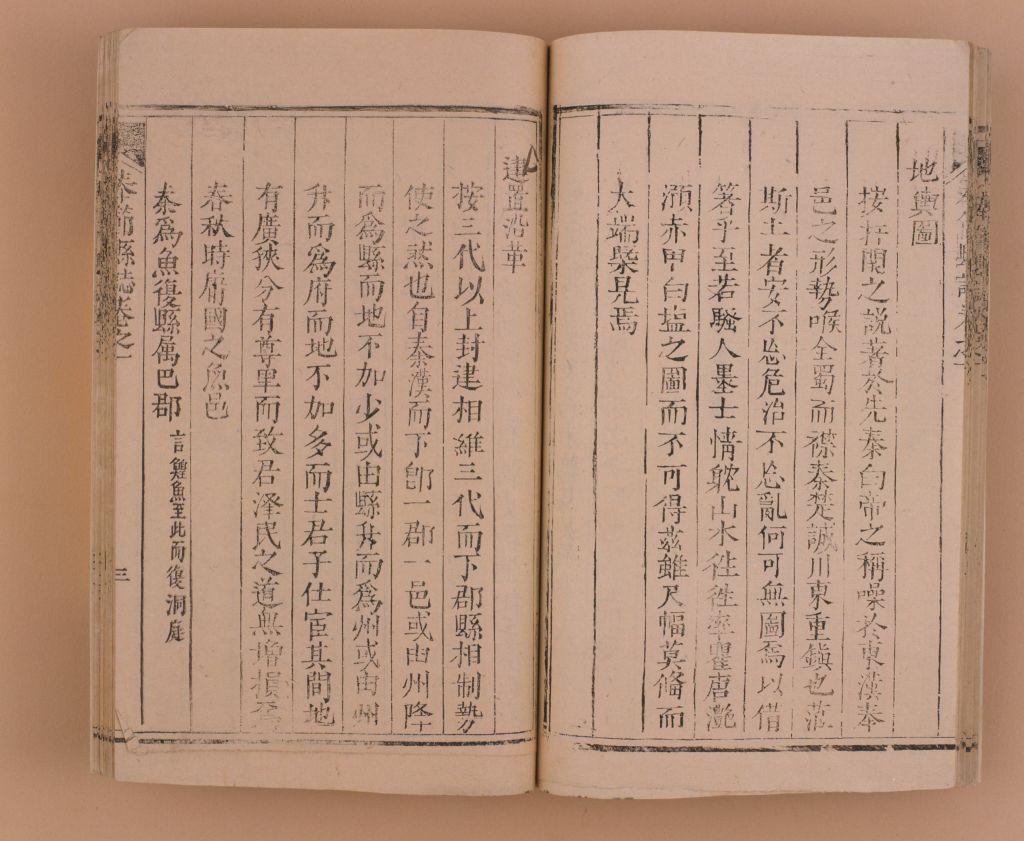 地輿圖
按扞關之說著於先秦白帝之稱噪於東漢奉
邑之形勢喉全蜀而襟秦楚誠川東重鎮也蒞
斯土者安不忘危治不忘亂何可無圖焉以借
箸乎至若騷人墨士情躭山水徃徃率瞿唐灔
澦赤甲白塩之圖而不可得茲雖尺幅莫俻而
大端槩見焉
建置沿革
按三代以上封建相維三代而下郡縣相制勢
使之然也自秦漢而下卽一郡一邑或由州降
而爲縣而地不加少或由縣升而爲州或由州
升而爲府而地不加多而士君子仕宦其間地
有廣狹分有尊卑而致君澤民之道無增損焉
春秋時庸國之魚邑
秦爲魚復縣属巴郡 言鰉魚至此而復洞庭
奉節縣誌卷之一
三